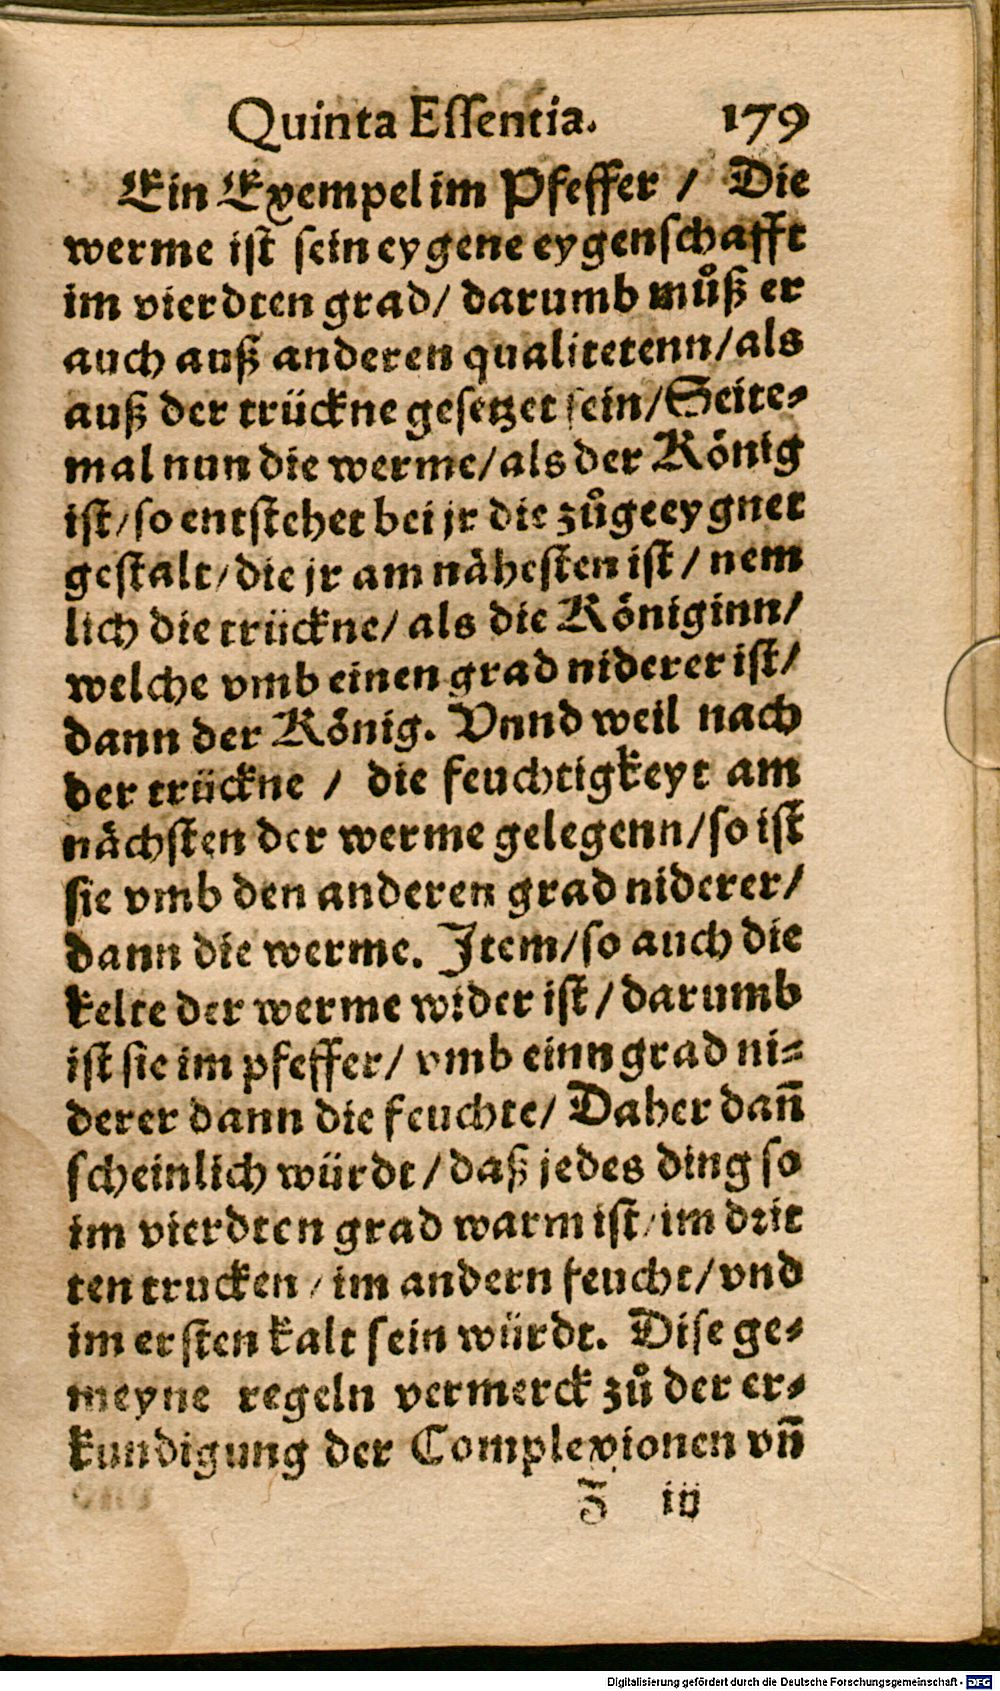 Quinta Eſſentia. 179
Ein Exempel im Pfeffer / Die
werme iſt ſein eygene eygenſchafft
im vierdten grad/ darumb muͦß er
auch auß anderen qualitetenn/als
auß der trückne geſetzet ſein/Seite⸗
mal nun die werme/als der König
iſt/ſo entſtehet bei jr die zuͦgeeygnet
geſtalt/die jr am nåheſten iſt/ nem
lich die trückne/ als die Königinn/
welche vmb einen grad niderer iſt/
dann der König. Vnnd weil nach
der trückne / die feuchtigkeyt am
nåchſten der werme gelegenn/ſo iſt
ſie vmb den anderen grad niderer/
dann die werme. Item/ſo auch die
kelte der werme wider iſt/ darumb
iſt ſie im pfeffer/ vmb einn grad ni⸗
derer dann die feuchte/ Daher dañ
ſcheinlich würdt/daß jedes ding ſo
im vierdten grad warm iſt/im drit
ten trucken/im andern feucht/vnd
im erſten kalt ſein würdt. Diſe ge⸗
meyne regeln vermerck zuͦ der er⸗
kundigung der Complexionen vñ
Z iij
Digitalisierung gefördert durch die Deutsche Forschungsgemeinschaft - DFG